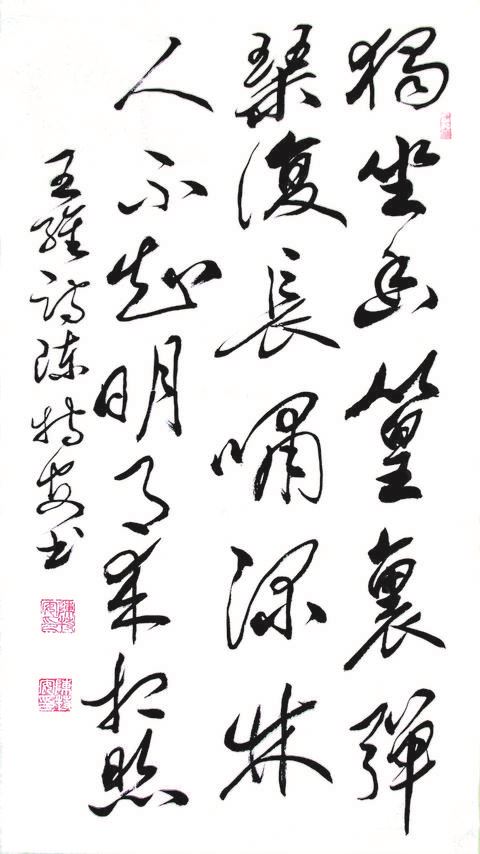 獨坐幽篁裏彈
琴復長嘯深林
人不知明月來相照
王維詩陳特安書